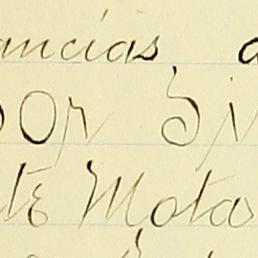 ancias, a
por si
te Mota